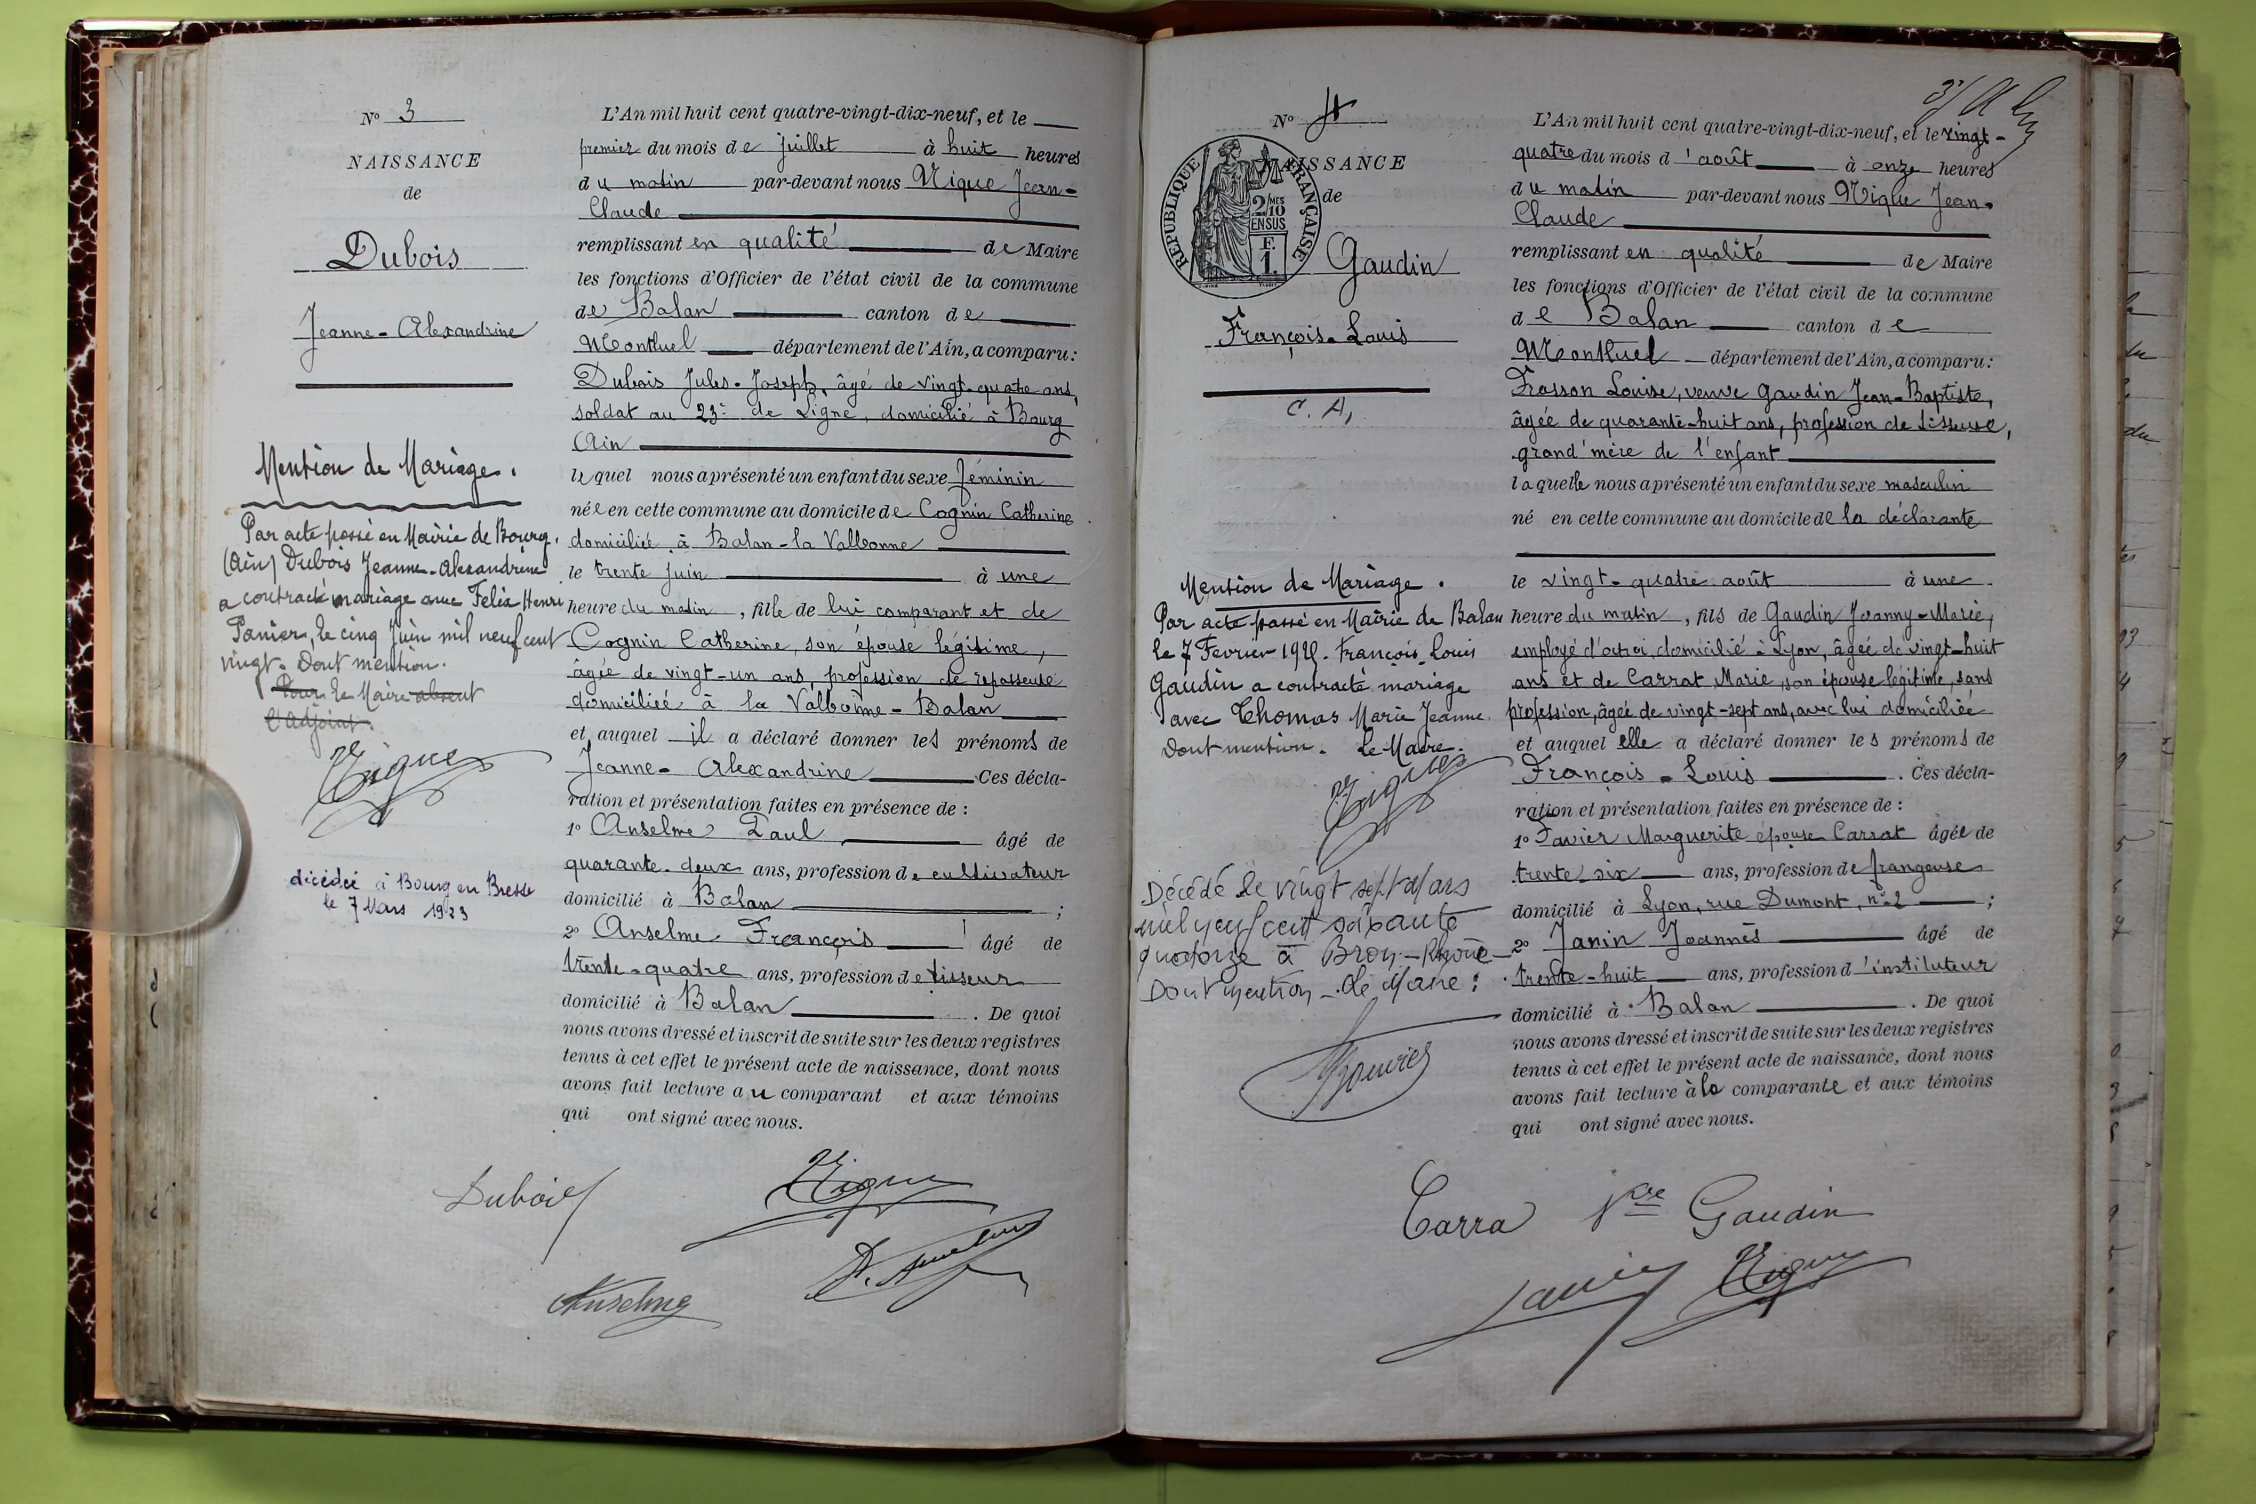 N° 3
NAISSANCE
de
Dubois
Jeanne-Alexandrine
Mention de Mariage.
Par acte passé en Mairie de Bourg.
(Ain) Dubois Jeanne-Alexandrine
a contracté mariage avec Félix Henri
Panier, le cinq Juin mil neuf cent
vingt. Dont mention.
Pour le Maire absent
l'adjoint.
Nique
décédée à Bourg en Bresse
le 7 Mars 1923
L'An mil huit cent quatre-vingt-dix-neuf, et le
premier du mois de juillet à huit heures
du matin par-devant nous Nique Jean-
Claude
remplissant en qualité de Maire
les fonctions d'Officier de l'état civil de la commune
de Balan canton de
Montluel département de l'Ain, a comparu:
Dubois Jules-Joseph, âgé de vingt-quatre ans,
soldat au 23e de Ligne, domicilié à Bourg
Ain
lequel nous a présenté un enfant du sexe féminin
née en cette commune au domicile de Cognin Catherine
domiciliée à Balan-la Valbonne
le trente juin à une
heure du matin, fille de lui comparant et de
Cognin Catherine, son épouse légitime,
âgée de vingt-un ans, profession de repasseuse
domiciliée à la Valbonne-Balan
et auquel il a déclaré donner les prénoms de
Jeanne-Alexandrine Ces décla-
ration et présentation faites en présence de :
1° Anselme Paul âgé de
quarante-deux ans, profession de cultivateur
domicilié à Balan ;
2° Anselme François âgé de
trente-quatre ans, profession de tisseur
domicilié à Balan . De quoi
nous avons dressé et inscrit de suite sur les deux registres
tenus à cet effet le présent acte de naissance, dont nous
avons fait lecture au comparant et aux témoins
qui ont signé avec nous.
Dubois Nique
Anselme A. Anselme
N° 4
NAISSANCE
de
REPUBLIQUE FRANÇAISE
2 MES 10
EN SUS
F.
1.
Gaudin
François-Louis
C. A,
Mention de Mariage.
Par acte passé en Mairie de Balan
le 7 Février 1920. François-Louis
Gaudin a contracté mariage
avec Thomas Marie Jeanne.
Dont mention. Le Maire.
Nique
Décédé le vingt sept Mars
mil neuf cent soixante
quatorze à Bron-Rhône-
Dont mention-. le Maire :
Bouvier
L'An mil huit cent quatre-vingt-dix-neuf, et le vingt-
quatre du mois d'août à onze heures
du matin par-devant nous Nique Jean-
Claude
remplissant en qualité de Maire
les fonctions d'Officier de l'état civil de la commune
de Balan canton de
Montluel département de l'Ain, a comparu:
Frosson Louise, veuve Gaudin Jean-Baptiste,
âgée de quarante-huit ans, profession de tisseuse,
grand'mère de l'enfant
laquelle nous a présenté un enfant du sexe masculin
né en cette commune au domicile de la déclarante
le vingt-quatre août à une
heure du matin, fils de Gaudin Joanny-Marie,
employé d'octroi, domicilié à Lyon, âgée de vingt-huit
ans et de Carrat Marie, son épouse légitime, sans
profession, âgée de vingt-sept ans, avec lui domiciliée
et auquel elle a déclaré donner les prénoms de
François-Louis . Ces décla-
ration et présentation faites en présence de :
1° Favier Marguerite épouse Carrat âgée de
trente-six ans, profession de frangeuse
domicilié à Lyon, rue Dumont, n° 2 ;
2° Janin Joannès âgé de
trente-huit ans, profession d'instituteur
domicilié à Balan . De quoi
nous avons dressé et inscrit de suite sur les deux registres
tenus à cet effet le présent acte de naissance, dont nous
avons fait lecture à la comparante et aux témoins
qui ont signé avec nous.
Carra Vve Gaudin
Janin Nique